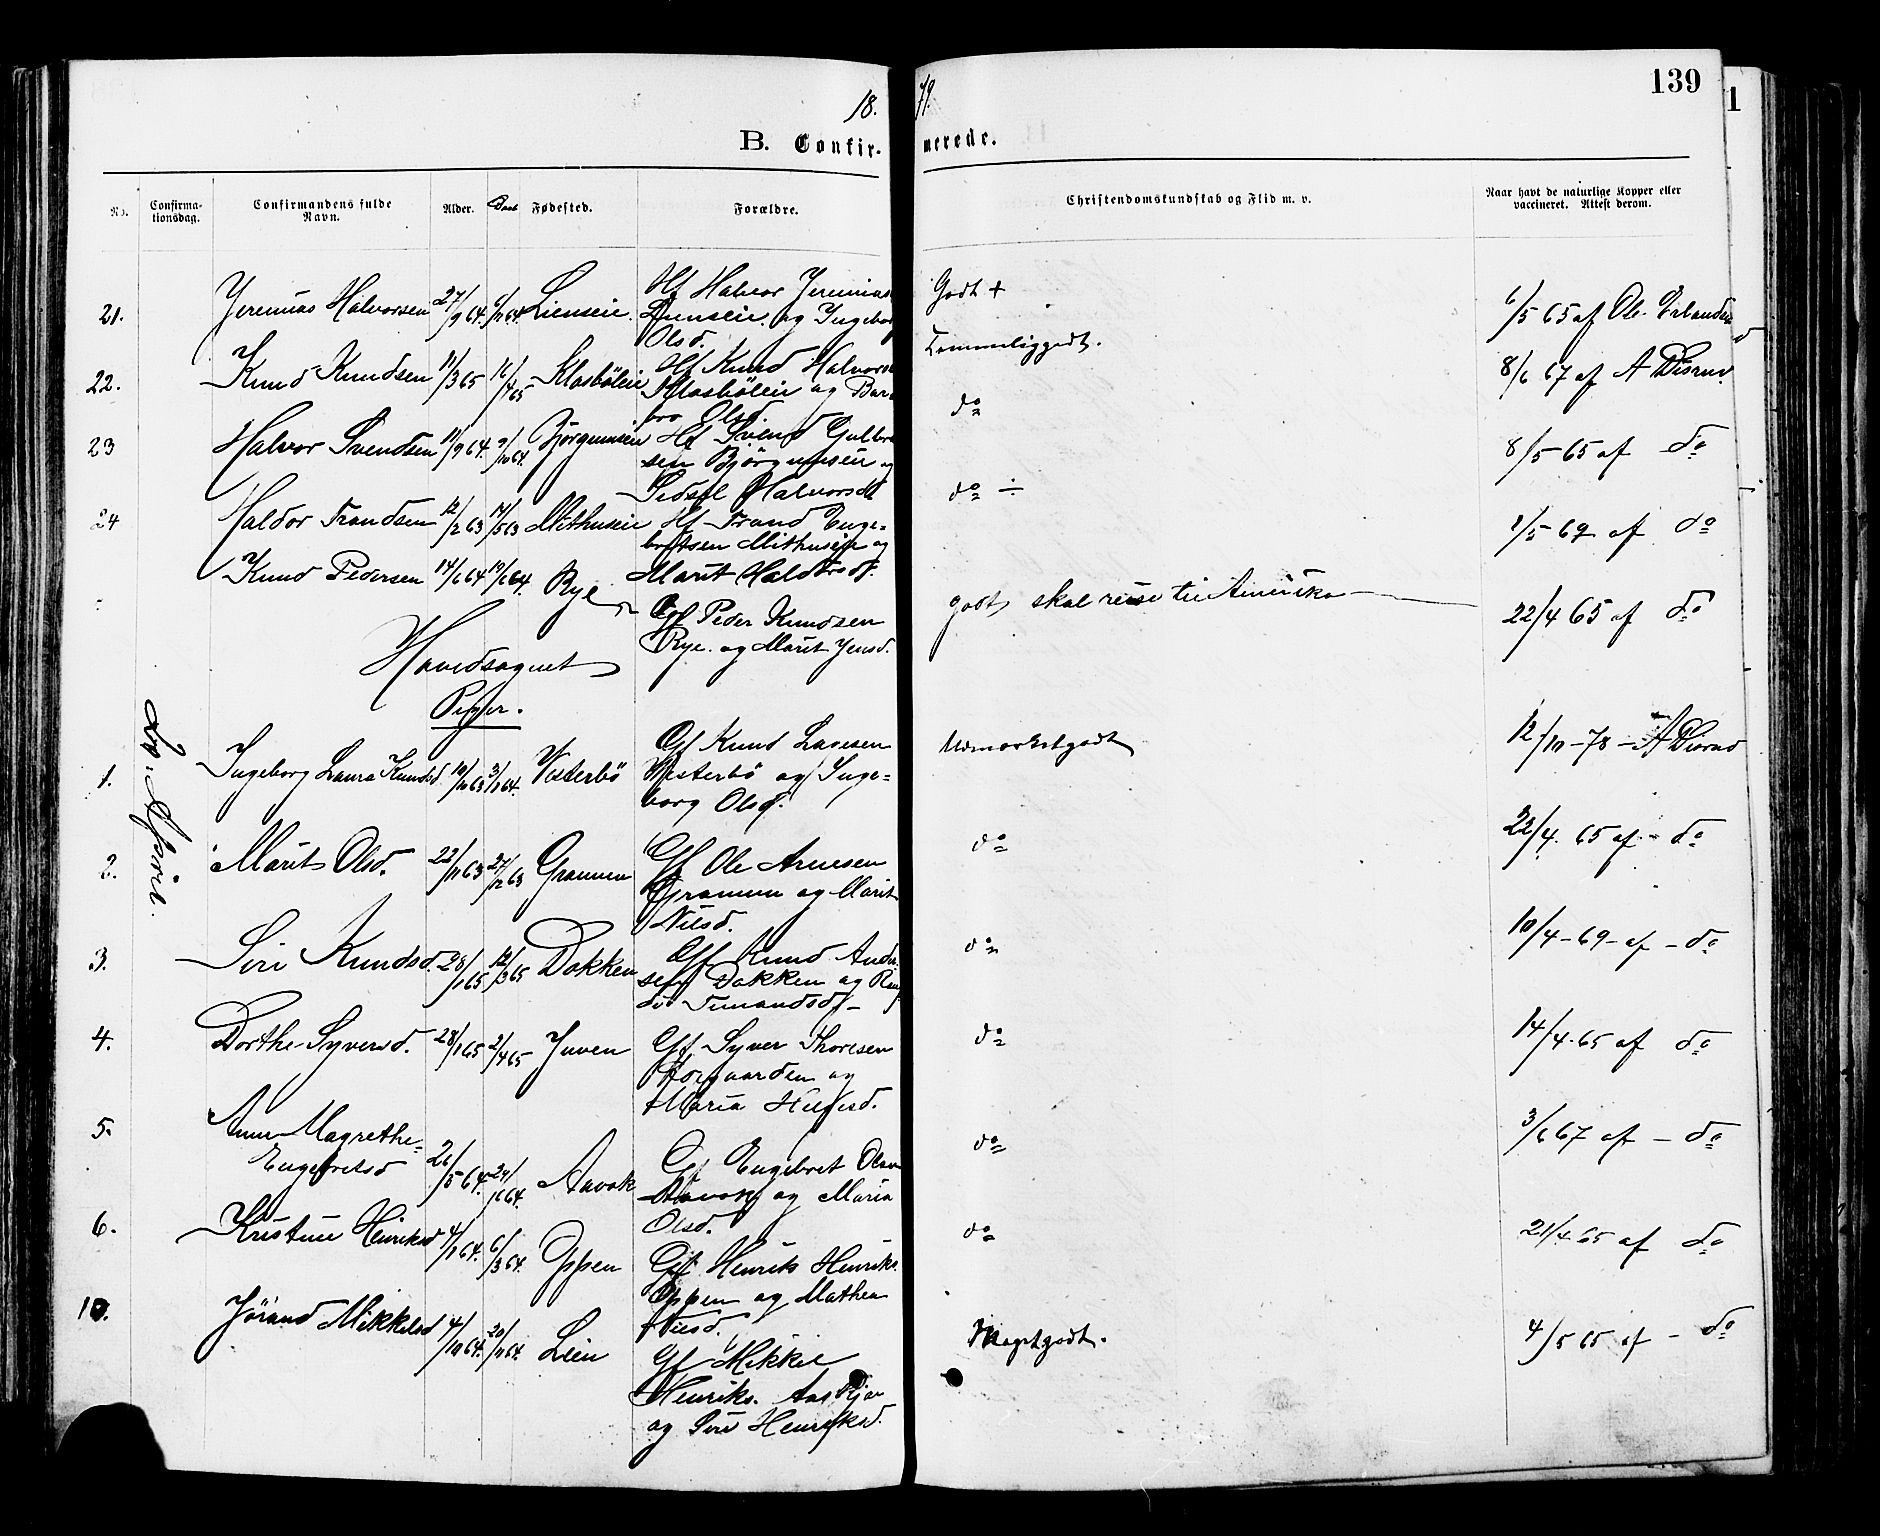 18.
79.
139
1
B. Confir-
merede.
No.
Confirma-
tionsdag.
Confirmandens fulde
Navn.
Alder.
Daab
Fødested.
Forældre.
Christendomskundskab og Flid m. v.
Naar havt de naturlige Kopper eller
vaccineret. Attest derom.
21. Jeremias Halvorsen 27/9 64. Lienseie. Hf Halvor Jeremias
og Ingeborg
Olsd.
Godt +
6/5 65 af Ole Erlandsen
22. Knud Knudsen 11/3 65 16/4 65 Klosbøleie Hf Knud Halvors
Klosbøleie og Bar
bro Olsd.
Temmeliggodt.
8/6 67 af A Disrud
23 Halvor Svendsen 11/9 64. 9/10 64. Hf Svend Gulbr
sen og
Sidsel Halvorsd
do
8/5 65 af do
24 Haldor Trondsen 12/2 63 14/5 63 Mithuseie Hf Trond Enge-
bretsen Mithuseie og
Marit Haldorsd.
do ÷
1/5 69 af do
Knud Pedersen 14/6 64 19/6 64. Rye
Gf Peder Knudsen
Rye og Marit Jensd.
godt, skal reise til Amerika
22/4 65 af do
Hovedsognet
Piger.
20. April.
1. Ingeborg Laura Knudsd. 10/10 63 3/1 64. Vesterbø Gf Knud Lavesen
Vesterbø og Inge-
borg Olsd.
Udmærketgodt
12/10 - 78 - A Disrud
2. Marit Olsd. 22/11 63 27/12 63 Gramen Gf Ole Arnesen
Gramen og Marit
Nilsd.
do
22/4. 65 af do
3. Siri Knudsd. 28/1 65 12/3 65 Dokken Gf Knud Ander
sen Dokken og Ran
di
do
10/4 - 69 - af - do
4. Dorthe Syversd. 28/1 65 2/4 65 Juven Gf Syver Thoresen
og
Maria Helgesd.
do
14/4 - 65 af do
5. Anne Magrethe
Engebretsd 26/5 64. Aavok Gf Engebret Olsen
Aavok og Maria
Olsd.
do
3/6 67 af - do
6. Kristine Henriksd 4/1 64. 6/3 64. Oppen Gf Henrik Henriks.
Oppen og Mathea
Nilsd.
do
21/4 65 af do
10. Jørand Mikkelsd 4/10 64. 20/11 64. Lien Gf Mikkel
Henriks.
og Siri Henriksd.
Megetgodt.
4/5 65 af - do